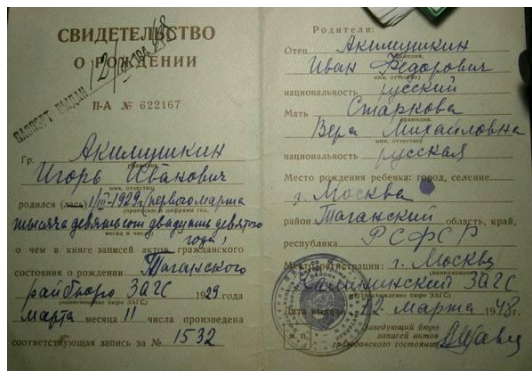 СВИДЕТЕЛЬСТВО
О РОЖДЕНИИ
II-А № 622167
ПАСПОРТ ВЫДАН 12/
Гр. Акимушкин
Игорь Иванович
имя, отчество
родился (лась) 1/III-1929г. первого марта
тысяча девятьсот двадцать девятого
года,
о чем в книге записей актов гражданского
состояния о рождении Таганского
райбюро ЗАГС 1929 года
марта месяца 11 числа произведена
соответствующая запись за № 1532
Родители:
Отец Акимушкин
фамилия,
Иван Федорович
имя, отчество
национальность русский
Мать Старкова
фамилия,
Вера Михайловна
имя, отчество
национальность русская
Место рождения ребенка: город, селение
г. Москва
район Таганский область, край,
республика РСФСР
Место регистрации: г. Москва
Калининский ЗАГС
Дата выдачи 12 марта 1948г.
М. П.
Заведующий бюро
записей актов
гражданского состояния